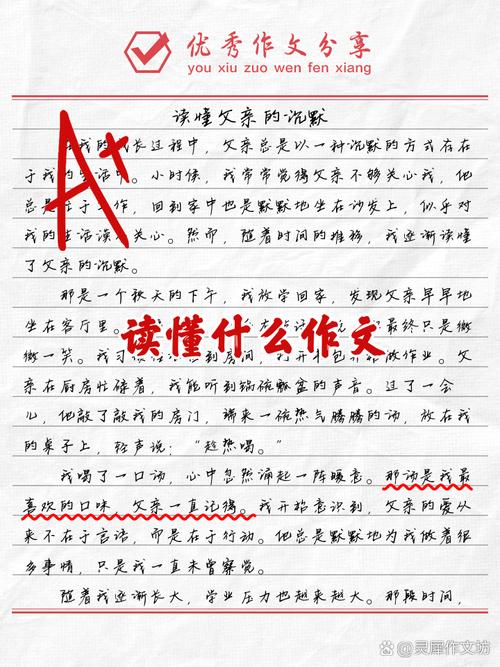 优秀作文分享
you xiu zuo wen fen xiang
A+
读懂父亲的沉默
我的 长过程中，父亲总是以一种沉默的方式存在
于我的生活中。小时候，我常常觉得父亲不够关心我，他
总是 于 作，回到家中也是默默地坐在沙发上，似乎对
我的生活 关心。然而，随着时间的推移，我逐渐读懂
了父亲的沉默。
那是一个秋天的下午，我放学回家，发现父亲早早地
坐在客厅里。 最终只是微
读懂什么作文
微一笑。我 到房间，打开 包 做作业。父
亲在厨房忙碌着，我能听到锅碗瓢盆的声音。过了一会
儿，他敲了敲我的房门，端来一碗热气腾腾的汤，放在我
的桌子上，轻声说：“趁热喝。”
我喝了一口汤，心中忽然涌起一阵暖意。那汤是我最
喜欢的口味，父亲一直记得。我开始意识到，父亲的爱从
来不在于言语，而是在于行动。他总是默默地为我做着很
多事情，只是我一直未曾察觉。
随着我逐渐长大，学业压力也越来越大。那段时间，
@灵犀作文坊